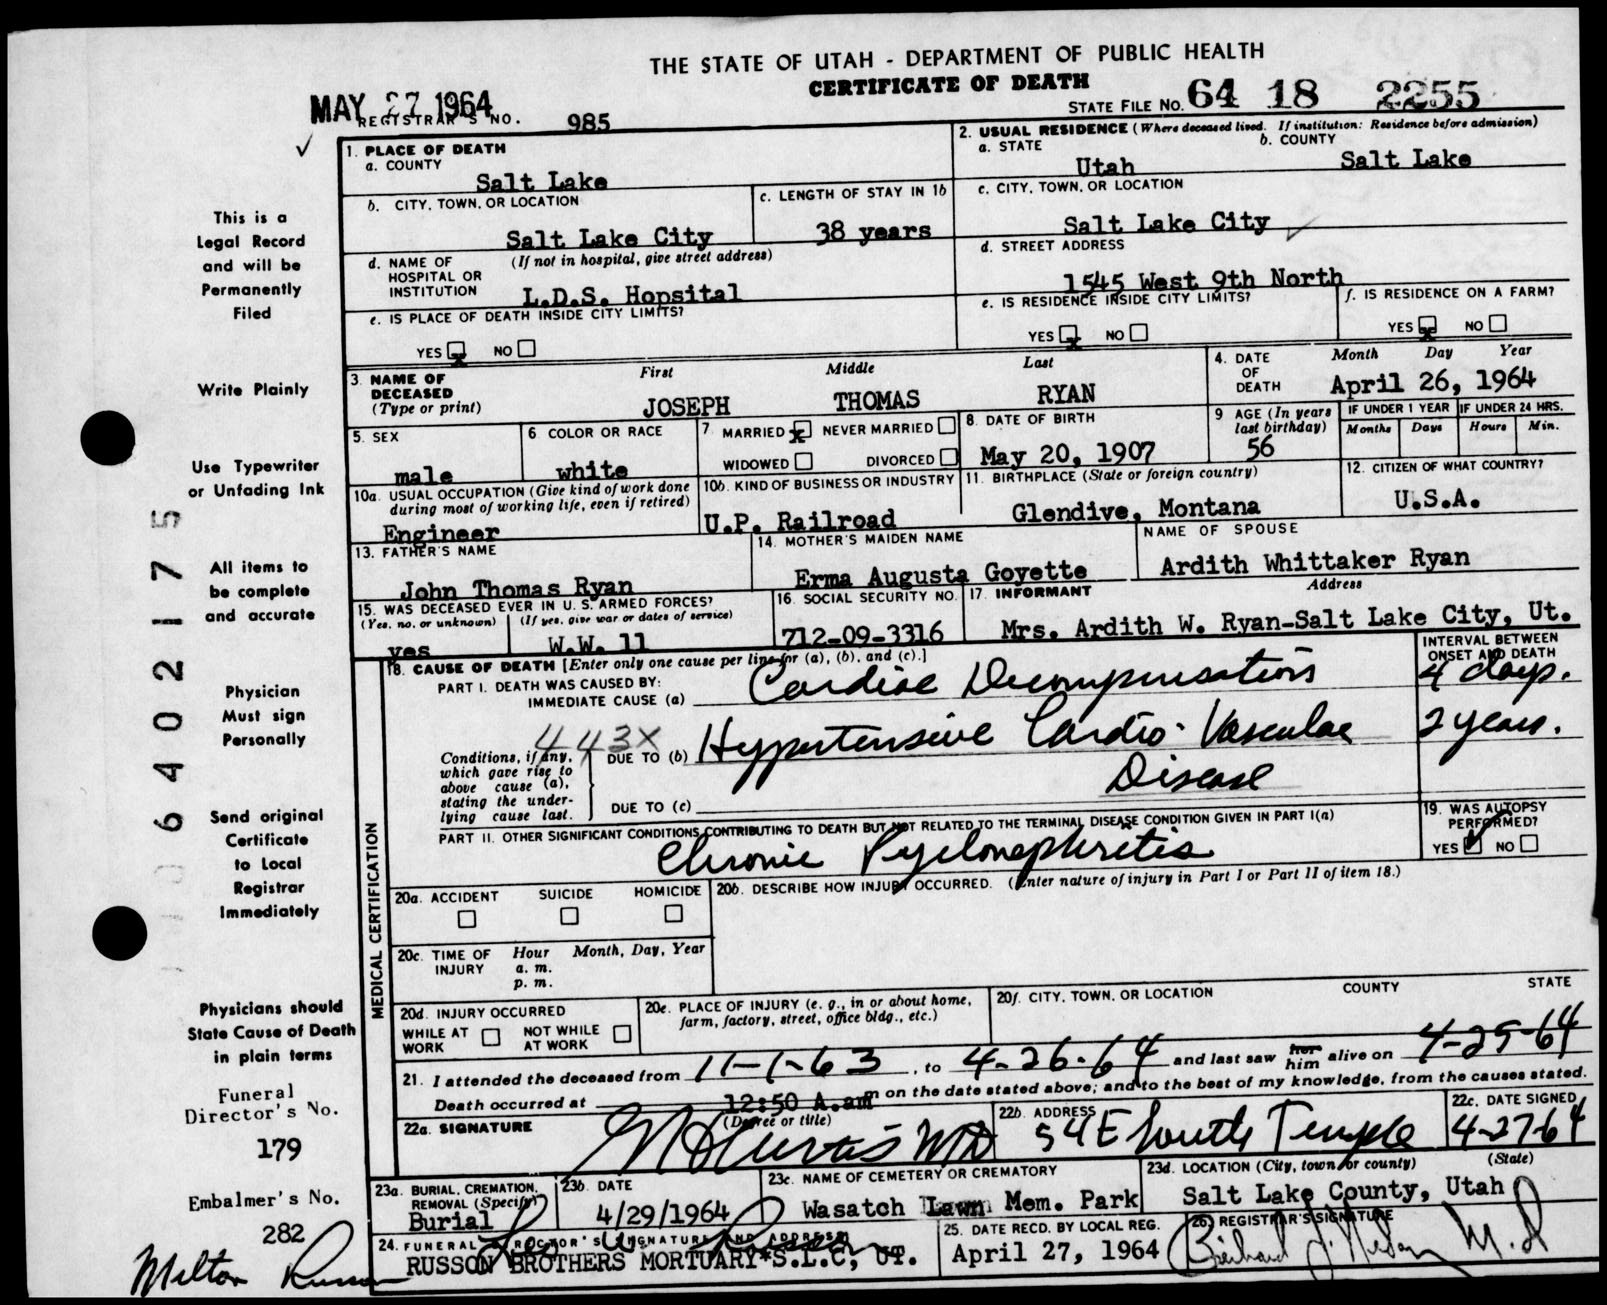 THE STATE OF UTAH - DEPARTMENT OF PUBLIC HEALTH
CERTIFICATE OF DEATH
MAY 27 1964
REGISTRAR'S NO. 985
STATE FILE NO. 64 18 2255
1. PLACE OF DEATH
a. COUNTY
Salt Lake
2. USUAL RESIDENCE (Where deceased lived. If institution: Residence before admission)
a. STATE
Utah
b. COUNTY
Salt Lake
b. CITY, TOWN, OR LOCATION
Salt Lake City
c. LENGTH OF STAY IN 1b
38 years
c. CITY, TOWN, OR LOCATION
Salt Lake City
d. NAME OF HOSPITAL OR INSTITUTION
(If not in hospital, give street address)
L.D.S. Hopsital
d. STREET ADDRESS
1545 West 9th North
e. IS PLACE OF DEATH INSIDE CITY LIMITS?
YES x NO
e. IS RESIDENCE INSIDE CITY LIMITS?
YES x NO
f. IS RESIDENCE ON A FARM?
YES x NO
3. NAME OF DECEASED
(Type or print)
First Middle Last
JOSEPH THOMAS RYAN
4. DATE OF DEATH
Month Day Year
April 26, 1964
5. SEX
male
6 COLOR OR RACE
white
7. MARRIED x NEVER MARRIED
WIDOWED DIVORCED
8. DATE OF BIRTH
May 20, 1907
9 AGE (In years last birthday)
56
IF UNDER 1 YEAR
Months Days
IF UNDER 24 HRS.
Hours Min.
10a. USUAL OCCUPATION (Give kind of work done during most of working life, even if retired)
Engineer
10b. KIND OF BUSINESS OR INDUSTRY
U.P. Railroad
11. BIRTHPLACE (State or foreign country)
Glendive, Montana
12. CITIZEN OF WHAT COUNTRY?
U.S.A.
13. FATHER'S NAME
John Thomas Ryan
14. MOTHER'S MAIDEN NAME
Erma Augusta Goyette
NAME OF SPOUSE
Ardith Whittaker Ryan
15. WAS DECEASED EVER IN U. S. ARMED FORCES?
(Yes, no, or unknown) (If yes, give war or dates of service)
yes W.W. 11
16. SOCIAL SECURITY NO.
712-09-3316
17. INFORMANT Address
Mrs. Ardith W. Ryan-Salt Lake City, Ut.
MEDICAL CERTIFICATION
18. CAUSE OF DEATH [Enter only one cause per line for (a), (b), and (c).]
INTERVAL BETWEEN ONSET AND DEATH
PART I. DEATH WAS CAUSED BY:
IMMEDIATE CAUSE (a) Cardiac Decompensation 4 days.
443X
Conditions, if any, which gave rise to above cause (a), stating the underlying cause last.
DUE TO (b) Hypertensive Cardio-Vascular 2 years.
Disease
DUE TO (c)
PART II. OTHER SIGNIFICANT CONDITIONS CONTRIBUTING TO DEATH BUT NOT RELATED TO THE TERMINAL DISEASE CONDITION GIVEN IN PART I(a)
Chronic Pyelonephritis
19. WAS AUTOPSY PERFORMED?
YES ✓ NO
20a. ACCIDENT SUICIDE HOMICIDE
20b. DESCRIBE HOW INJURY OCCURRED. (Enter nature of injury in Part I or Part II of item 18.)
20c. TIME OF INJURY
Hour Month, Day, Year
a. m.
p. m.
20d. INJURY OCCURRED
WHILE AT WORK NOT WHILE AT WORK
20e. PLACE OF INJURY (e. g., in or about home, farm, factory, street, office bldg., etc.)
20f. CITY, TOWN, OR LOCATION COUNTY STATE
21. I attended the deceased from 11-1-63, to 4-26-64 and last saw her him alive on 4-25-64
Death occurred at 12:50 A.am m on the date stated above; and to the best of my knowledge, from the causes stated.
22a. SIGNATURE (Degree or title)
Curtis MD
22b. ADDRESS
54 E South Temple
22c. DATE SIGNED
4-27-64
23a. BURIAL, CREMATION, REMOVAL (Specify)
Burial
23b. DATE
4/29/1964
23c. NAME OF CEMETERY OR CREMATORY
Wasatch Lawn Mem. Park
23d. LOCATION (City, town, or county) (State)
Salt Lake County, Utah
24. FUNERAL DIRECTOR'S SIGNATURE AND ADDRESS
RUSSON BROTHERS MORTUARY*S.L.C, UT.
25. DATE RECD. BY LOCAL REG.
April 27, 1964
26. REGISTRAR'S SIGNATURE
M.D
This is a
Legal Record
and will be
Permanently
Filed
Write Plainly
Use Typewriter
or Unfading Ink
All items to
be complete
and accurate
Physician
Must sign
Personally
Send original
Certificate
to Local
Registrar
Immediately
Physicians should
State Cause of Death
in plain terms
Funeral
Director's No.
179
Embalmer's No.
282
Milton Russon
6402175